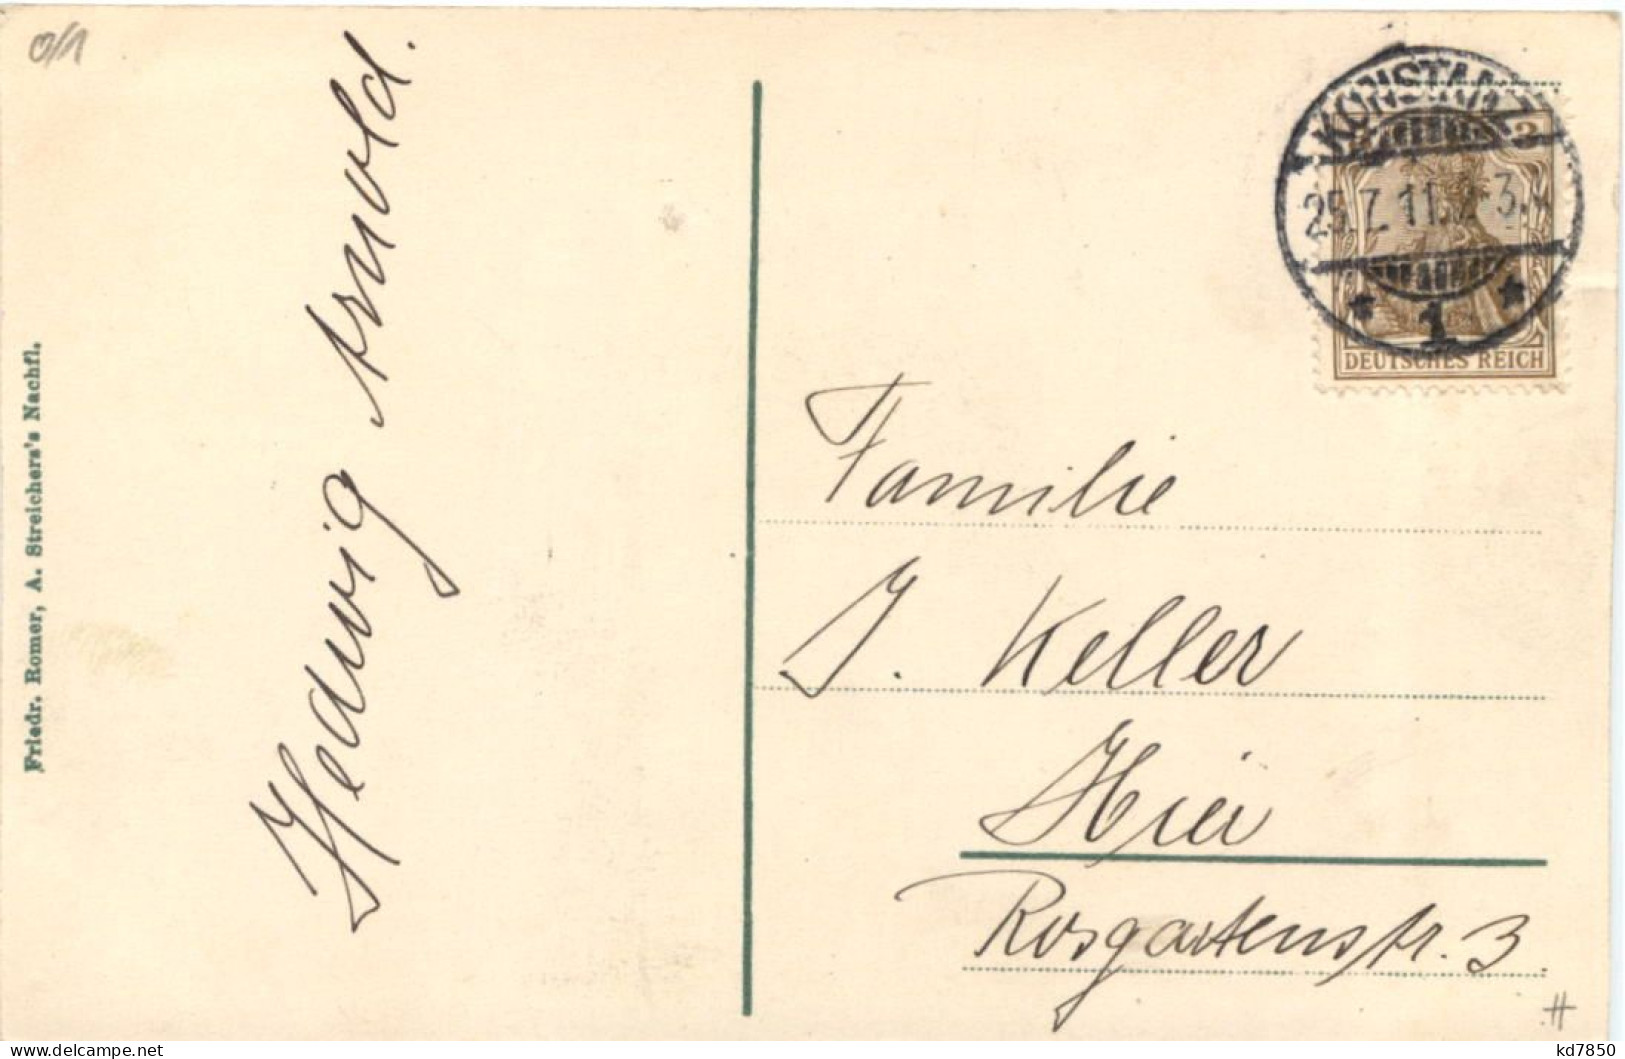 0/1
Friedr. Romer, A. Streichers's Nachfl.
Hedwig Arnold.
KONSTANZ
25.7.11.
* 1 *
3
DEUTSCHES REICH
Familie
J. Keller
Hier
Rosgartenstr. 3.
kd7850